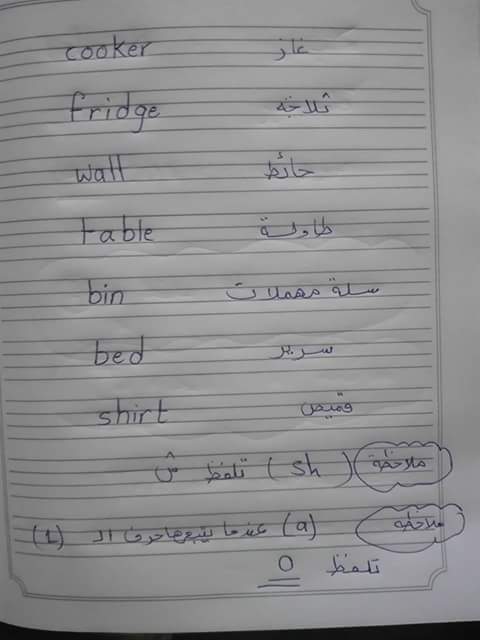 cooker غاز
fridge ثلاجة
wall حائط
table طاولة
bin سلة مهملات
bed سرير
shirt قميص
ملاحظة (sh) تلفظ ش
ملاحظة (a) عندما يتبعها حرف الـ (l)
تلفظ O